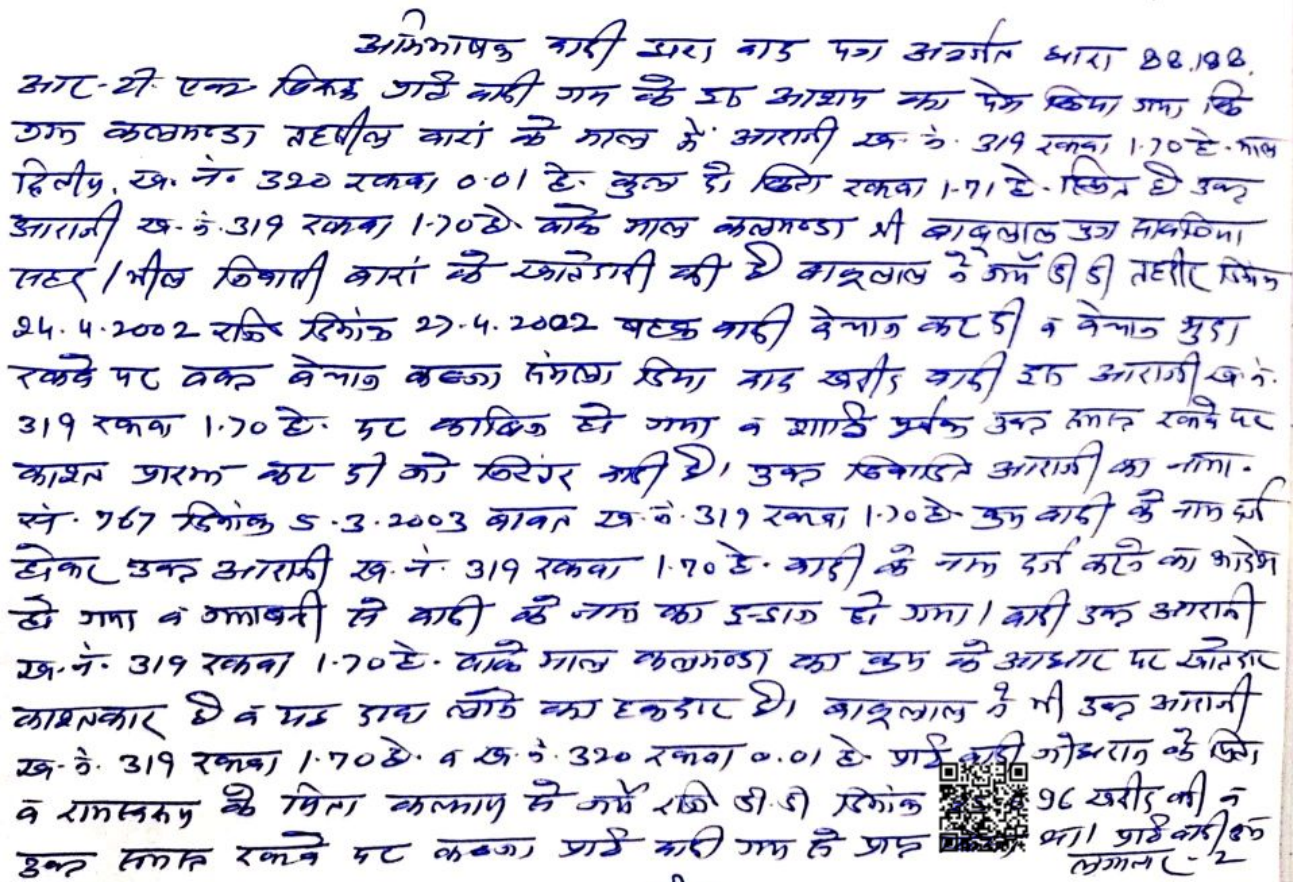 अभिभाषक वादी द्वारा वाद पत्र अन्तर्गत धारा 88,188,
आर.टी. एक्ट विरुद्ध प्रति वादी गण के इस आशय का पेश किया गया कि
ग्राम कलमण्डा तहसील बारां के माल में आराजी ख.नं. 319 रकबा 1.70 है. माल
द्वितीय, ख.नं. 320 रकबा 0.01 है. कुल दो किता रकबा 1.71 है. स्थित है उक्त
आराजी ख.नं. 319 रकबा 1.70 है. वाके माल कलमण्डा श्री बाबूलाल पुत्र
/ भील निवासी बारां के खातेदारी की है बाबूलाल ने जर्ये डी डी तहरीर दिनांक
24.4.2002 रजि. दिनांक 27.4.2002 बहक वादी बेचान कर दी व बेचान शुदा
रकबे पर वक्त बेचान कब्जा संभला दिया बाद खरीद वादी इस आराजी ख.नं.
319 रकबा 1.70 है. पर काबिज हो गया व शांति पूर्वक उक्त समस्त रकबे पर
काश्त प्रारम्भ कर दी जो निरंतर जारी है। उक्त विवादित आराजी का नामा.
सं. 767 दिनांक 5.3.2003 बाबत ख.नं. 319 रकबा 1.70 है. क्रय वादी के नाम दर्ज
होकर उक्त आराजी ख.नं. 319 रकबा 1.70 है. वादी के नाम दर्ज करने का आदेश
हो गया व जमाबन्दी में वादी के नाम का इन्द्राज हो गया। वादी उक्त आराजी
ख.नं. 319 रकबा 1.70 है. वाके माल कलमण्डा का क्रय के आधार पर खातेदार
काश्तकार है व यह दावा लाने का हकदार है। बाबूलाल ने भी उक्त आराजी
ख.नं. 319 रकबा 1.70 है. व ख.नं. 320 रकबा 0.01 है. प्रति वादी गोधराज के पिता
व रामस्वरूप के पिता कल्याण से जर्ये रजि. डी.डी दिनांक 96 खरीद की व
उक्त समस्त रकबे पर कब्जा प्रति वादी गण से प्राप्त था। प्रति वादी
लगातार - 2